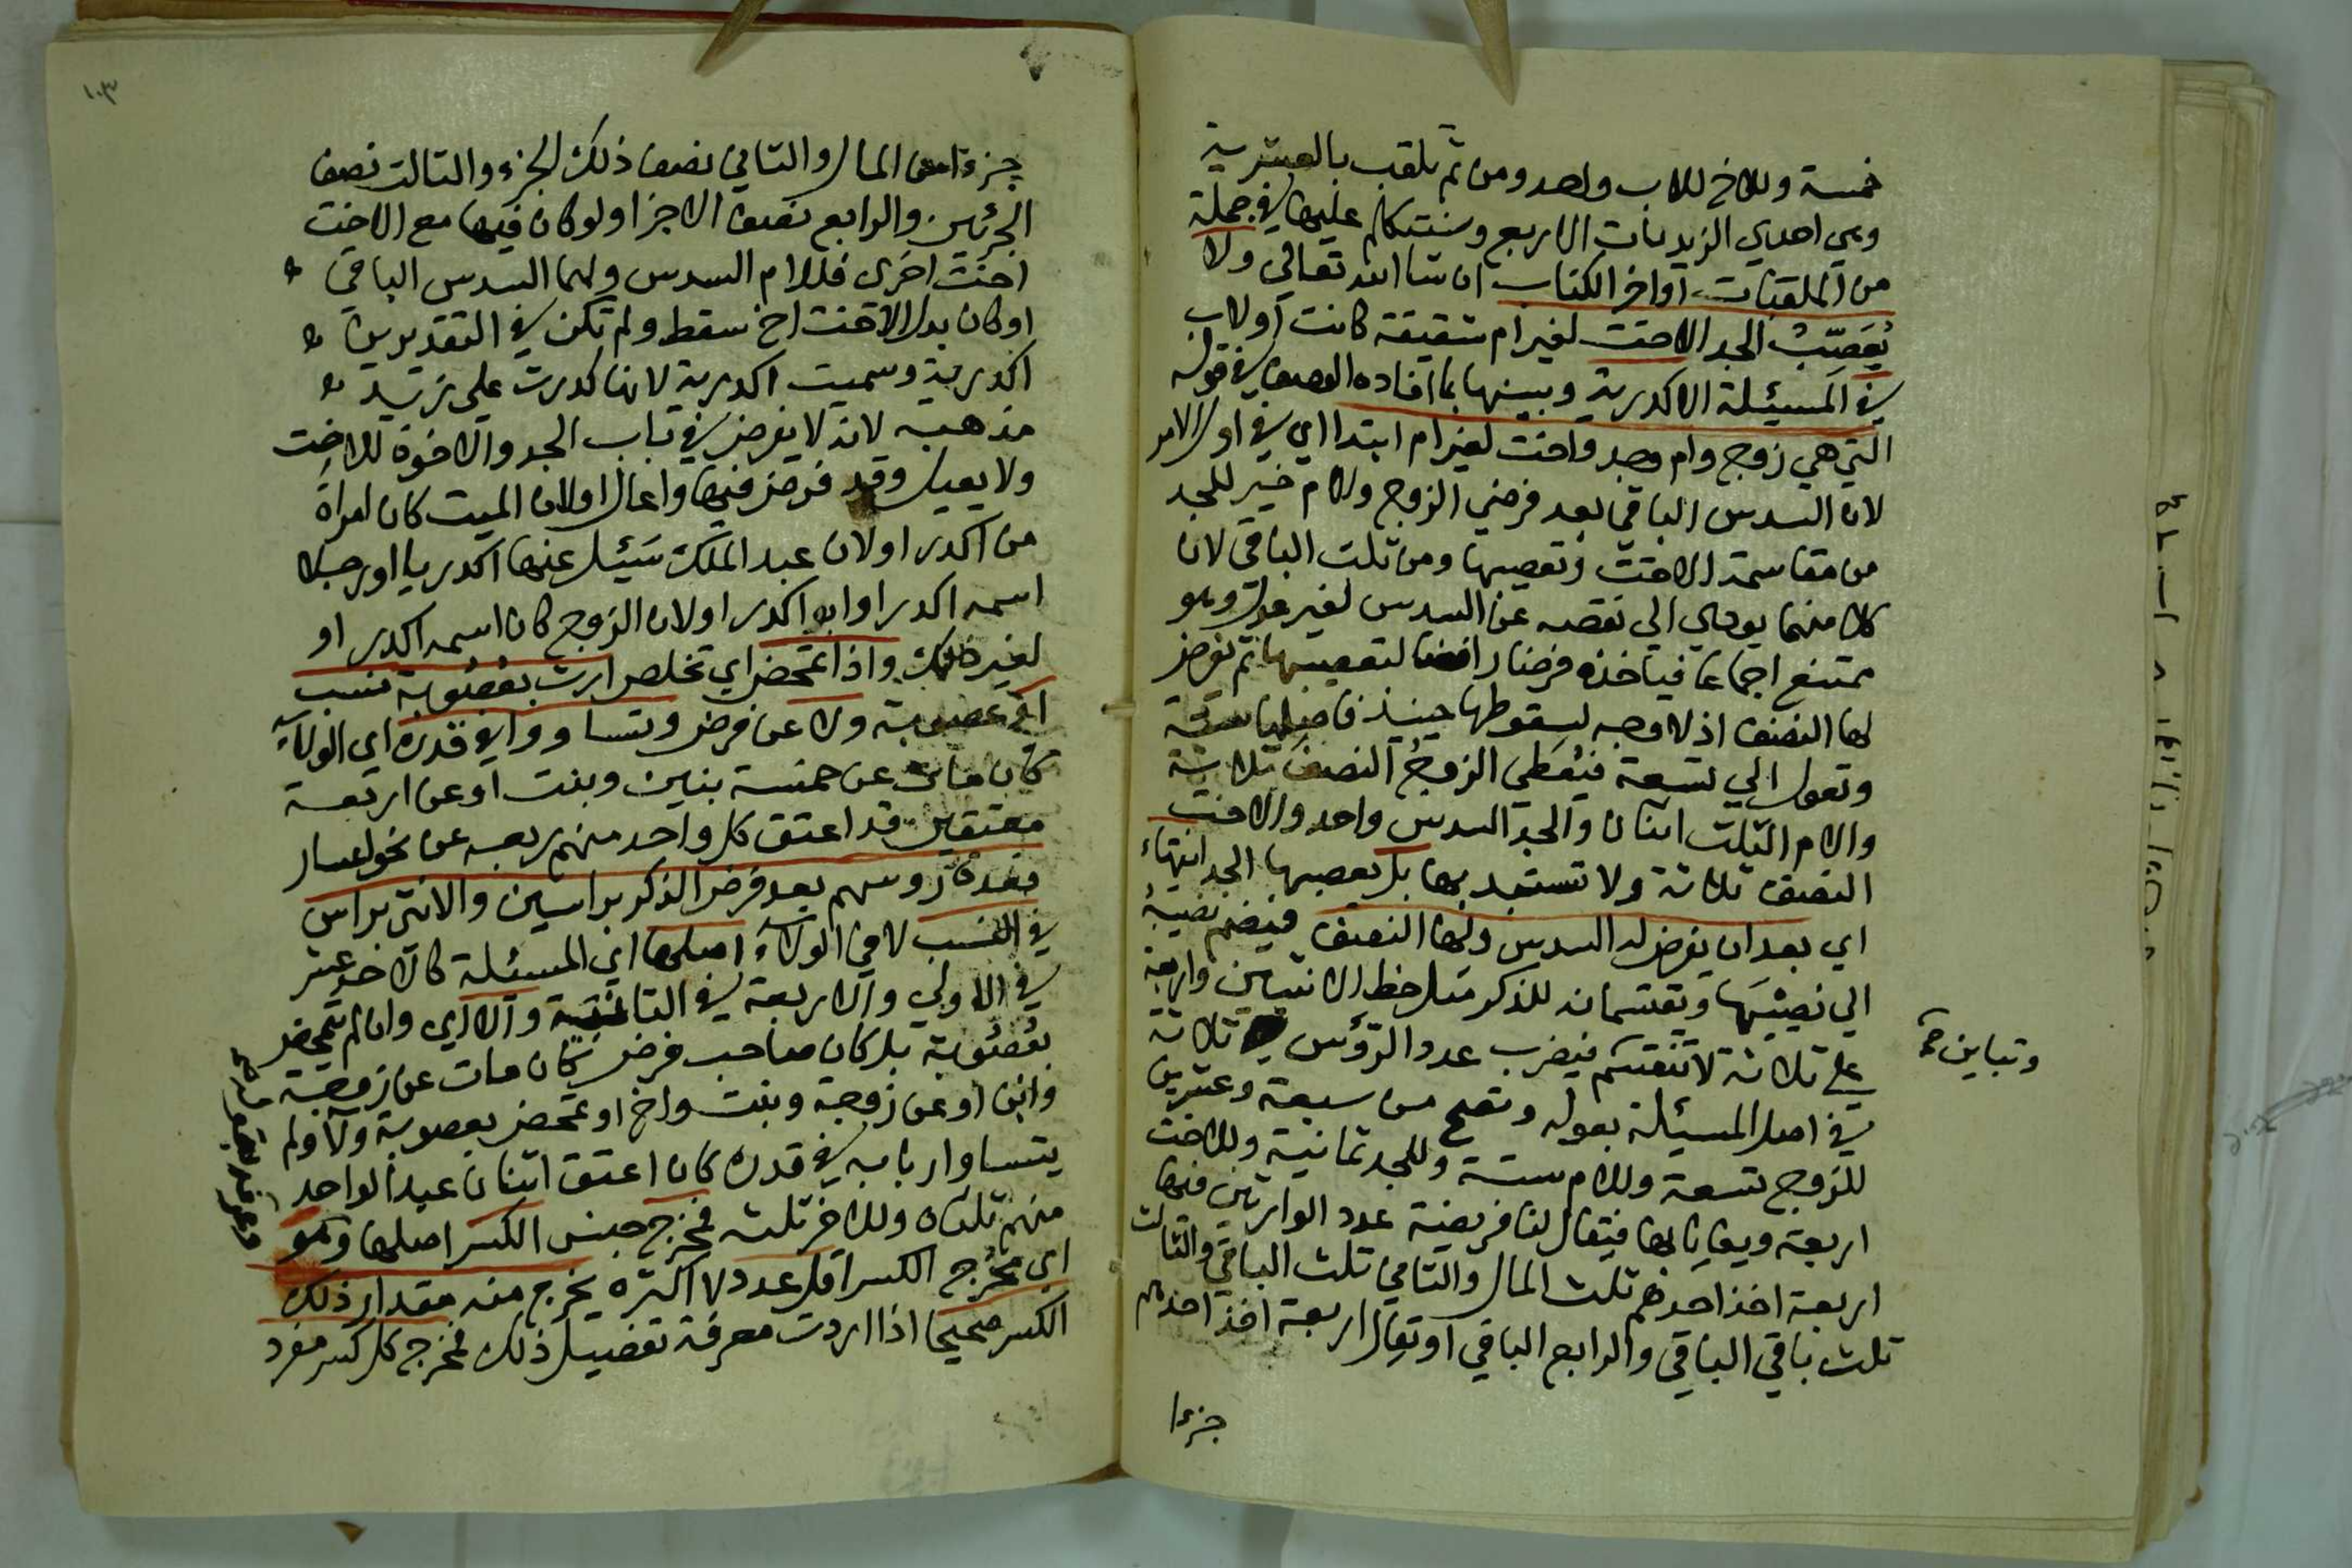 خمسة وللاخ للاب واحد ومن ثم تلقب بالعشرية
وهي احدي الزيديات الاربع وسنتكلم عليها في جملة
من الملقبات اواخر الكتاب ان شا الله تعالي ولا
يُعَصِّبُ الجد الاخت لغير ام شقيقة كانت او لاب
في المسئلة الاكدرية وبينها بما افاده المصنف في قوله
التي هي زوج وام وجد واخت لغير ام ابتدا اي في اول الامر
لان السدس الباقي بعد فرضي الزوج والام خير للجد
من مقاسمة الاخت وتعصيبها ومن ثلث الباقي لان
كلا منهما يودي الي نقصه عن السدس لغير عول وهو
ممتنع اجماعا فياخذه فرضا لتعصيبها ثم يفرض
لها النصف اذ لا وجه لسقوطها حينيذ فاصلها ستة
وتعول الي تسعة فيُعطي الزوجُ النصف ثلاثة
والام الثلث اثنان والجد السدس واحد والاخت
النصف ثلاثة ولا تستبد بها بل يعصبها الجد انتهاء
اي بعد ان يفرض له السدس ولها النصف فيضم نصيبهُ
الي نصيبها ويقتسمانه للذكر مثل حظ الانثيين واربعة
علي ثلاثة لا تنقسم فيضرب عدد الرؤس ثلاثة
وتباين صح
في اصل المسئلة بعوله وتصح من سبعة وعشرين
للزوج تسعة وللام ستة وللجد ثمانية وللاخت
اربعة ويعايا بها فيقال لنا فريضة عدد الوارثين فيها
اربعة اخذ احدهم ثلث المال والثاني ثلث الباقي والثالث
ثلث باقي الباقي والرابع الباقي او يقال اربعة اخذ احدهم
جزءا
١٠٣
جزءا من المال والثاني نصف ذلك الجزء والثالث نصف
الجزئين والرابع نصف الاجزا ولو كان فيها مع الاخت
اخت اخرى فللام السدس ولهما السدس الباقي
او كان بدل الاخت اخ سقط ولم تكن في التقديرين
اكدرية وسميت اكدرية لانها كدرت على زيد
مذهبه لانه لا يفرض في باب الجد والاخوة للاخت
ولا يعيل وقد فرض فيها واعال او لان الميت كان امراة
من اكدر او لان عبد الملك سَيئل عنها اكدريا او رجلا
اسمه اكدر او ابو اكدر او لان الزوج كان اسمه اكدر او
لغير ذلك واذا تمحض اي تخلص ارث بعُصُوبة نسب
اي عصوبة ولا عن فرض وتساووا في قدره اي الولآء
كان مات عن خمسة بنين وبنت او عن اربعة
معتقين قد اعتق كل واحد منهم ربعه عن نحو اعسار
فعدة رؤسهم بعد فرض الذكر براسين والانثى براس
في النسب لا في الولآء اصلها اي المسئلة كالاحد عشر
في الاولي والاربعة في الثانية والا اي وان لم يتمحض
بعُصُوبة بل كان صاحب فرض كان مات عن زوجة
وابن او عن زوجة وبنت واخ او تمحض بعصوبة ولآ ولم
يتساوا اربابه في قدره كان اعتق اثنان عبدا لواحد
منهم ثلثاه وللاخر ثلث فمخرج جنس الكسر اصلها وهو
اي مخرج الكسر اقل عدد لا اكثره يخرج منه مقدار ذلك
الكسر صحيحا اذا اردت معرفة تفصيل ذلك فمخرج كل كسر مفرد